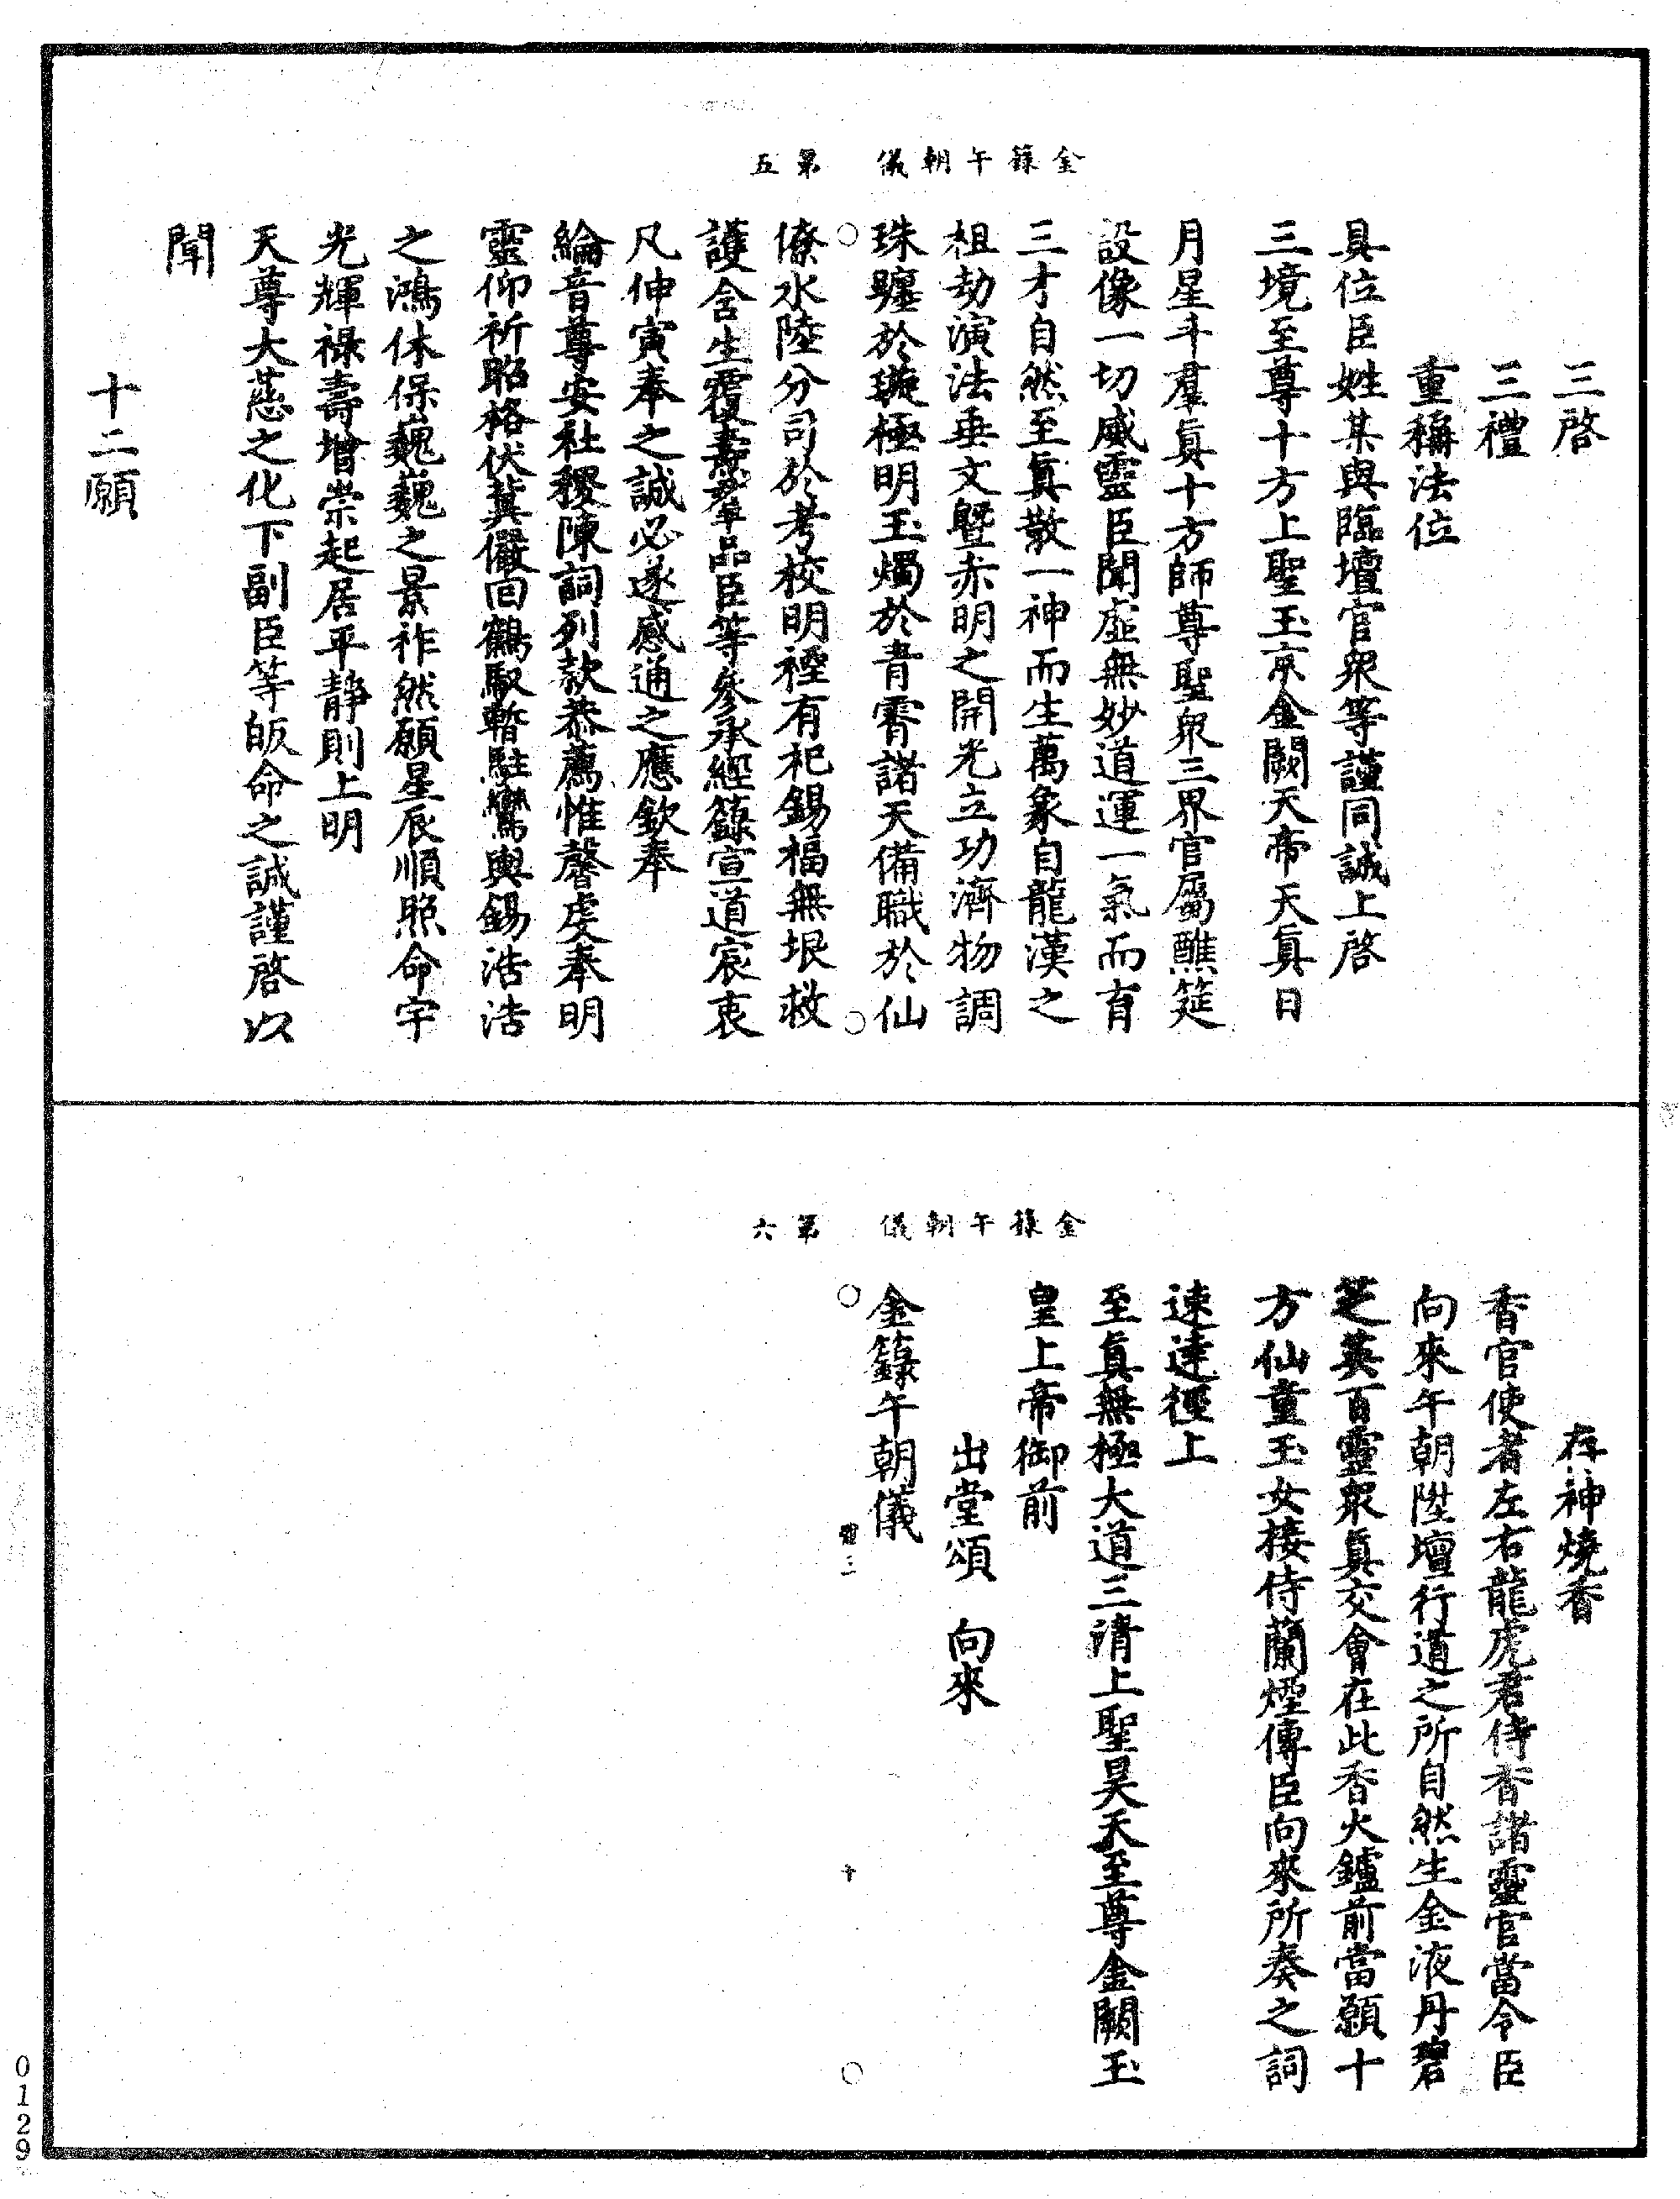 金籙午朝儀　第五
三啓
三禮
重稱法位
具位臣姓某與臨壇官眾等謹同誠上啓
三境至尊十方上聖玉京金闕天帝天真日
月星斗羣真十方師尊聖眾三界官屬醮筵
設像一切威靈臣聞虛無妙道運一氣而育
三才自然至真散一神而生萬象自龍漢之
祖劫演法垂文曁赤明之開光立功濟物調
珠躔於璇極明玉燭於青霄諸天備職於仙
僚水陸分司於考校明禋有祀錫福無垠救
護含生覆燾羣品臣等叅承經籙宣道宸衷
凡伸寅奉之誠必遂感通之應欽奉
綸音尊安社稷陳詞列款恭薦惟馨虔奉明
靈仰祈昭格伏冀儼回鶴馭暫駐鸞輿錫浩浩
之鴻休保巍巍之景祚然願星辰順照命宇
光輝祿壽增崇起居平静則上明
天尊大慈之化下副臣等皈命之誠謹啓以
聞
十二願
金籙午朝儀　第六
存神燒香
香官使者左右龍虎君侍香諸靈官當令臣
向來午朝陞壇行道之所自然生金液丹碧
芝英百靈眾真交會在此香火鑪前當願十
方仙童玉女接侍蘭煙傳臣向來所奏之詞
速達徑上
至真無極大道三清上聖昊天至尊金闕玉
皇上帝御前
出堂頌　向來
金籙午朝儀
三
十
0129